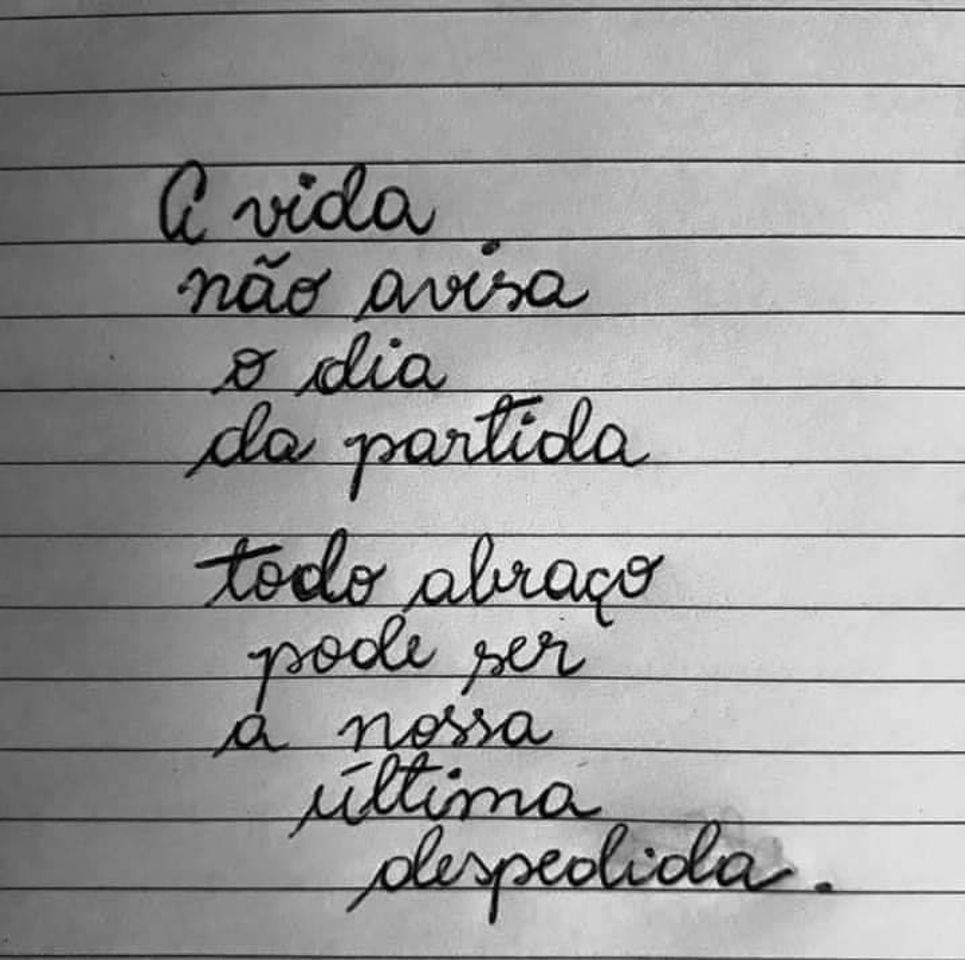 A vida
não avisa
o dia
da partida
todo abraço
pode ser
a nossa
última
despedida.